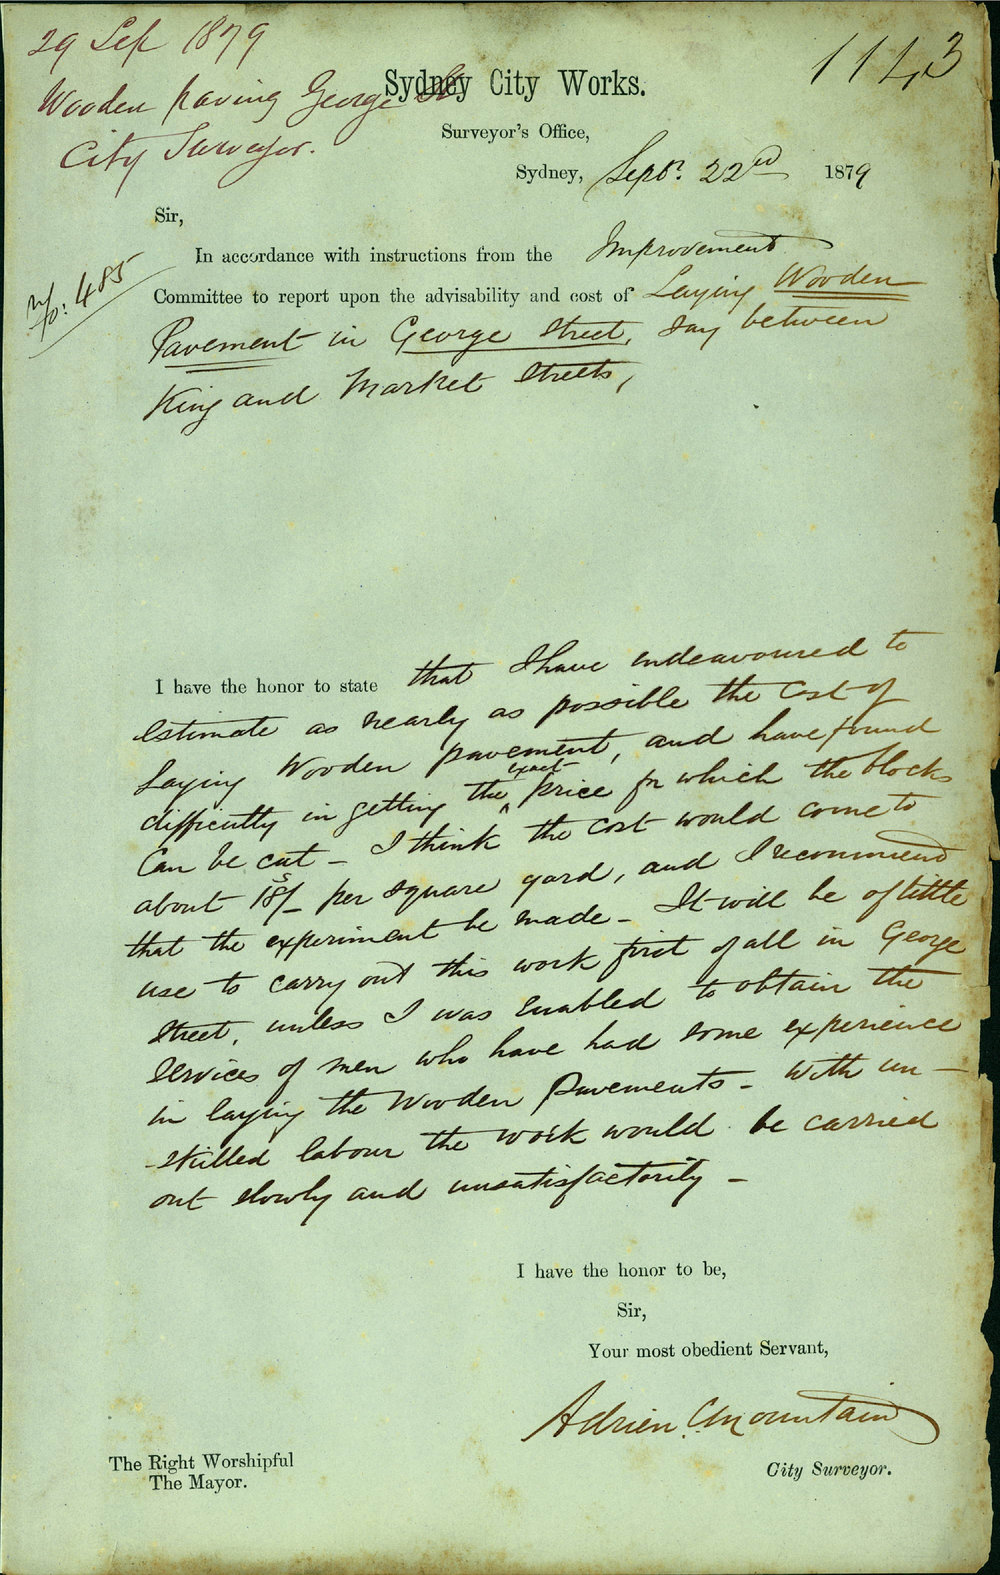 29 Sep 1879
Wooden paving George St
City Surveyor.
1143
Sydney City Works.
Surveyor's Office,
Sydney, Sepr. 22nd 1879
Sir,
No: 485
In accordance with instructions from the Improvement
Committee to report upon the advisability and cost of Laying Wooden
Pavement in George Street, say between
King and Market Streets,
I have the honor to state that I have endeavoured to
estimate as nearly as possible the cost of
Laying Wooden pavement, and have found
difficulty in getting the exact price for which the blocks
Can be cut - I think the cost would come to
about 18/- per square yard, and I recommend
that the experiment be made - It will be of little
use to carry out this work first of all in George
Street, unless I was enabled to obtain the
services of men who have had some experience
in laying the Wooden Pavements - With un-
-skilled labour the work would be carried
out slowly and unsatisfactorily -
I have the honor to be,
Sir,
Your most obedient Servant,
Adrien C Mountain
City Surveyor.
The Right Worshipful
The Mayor.